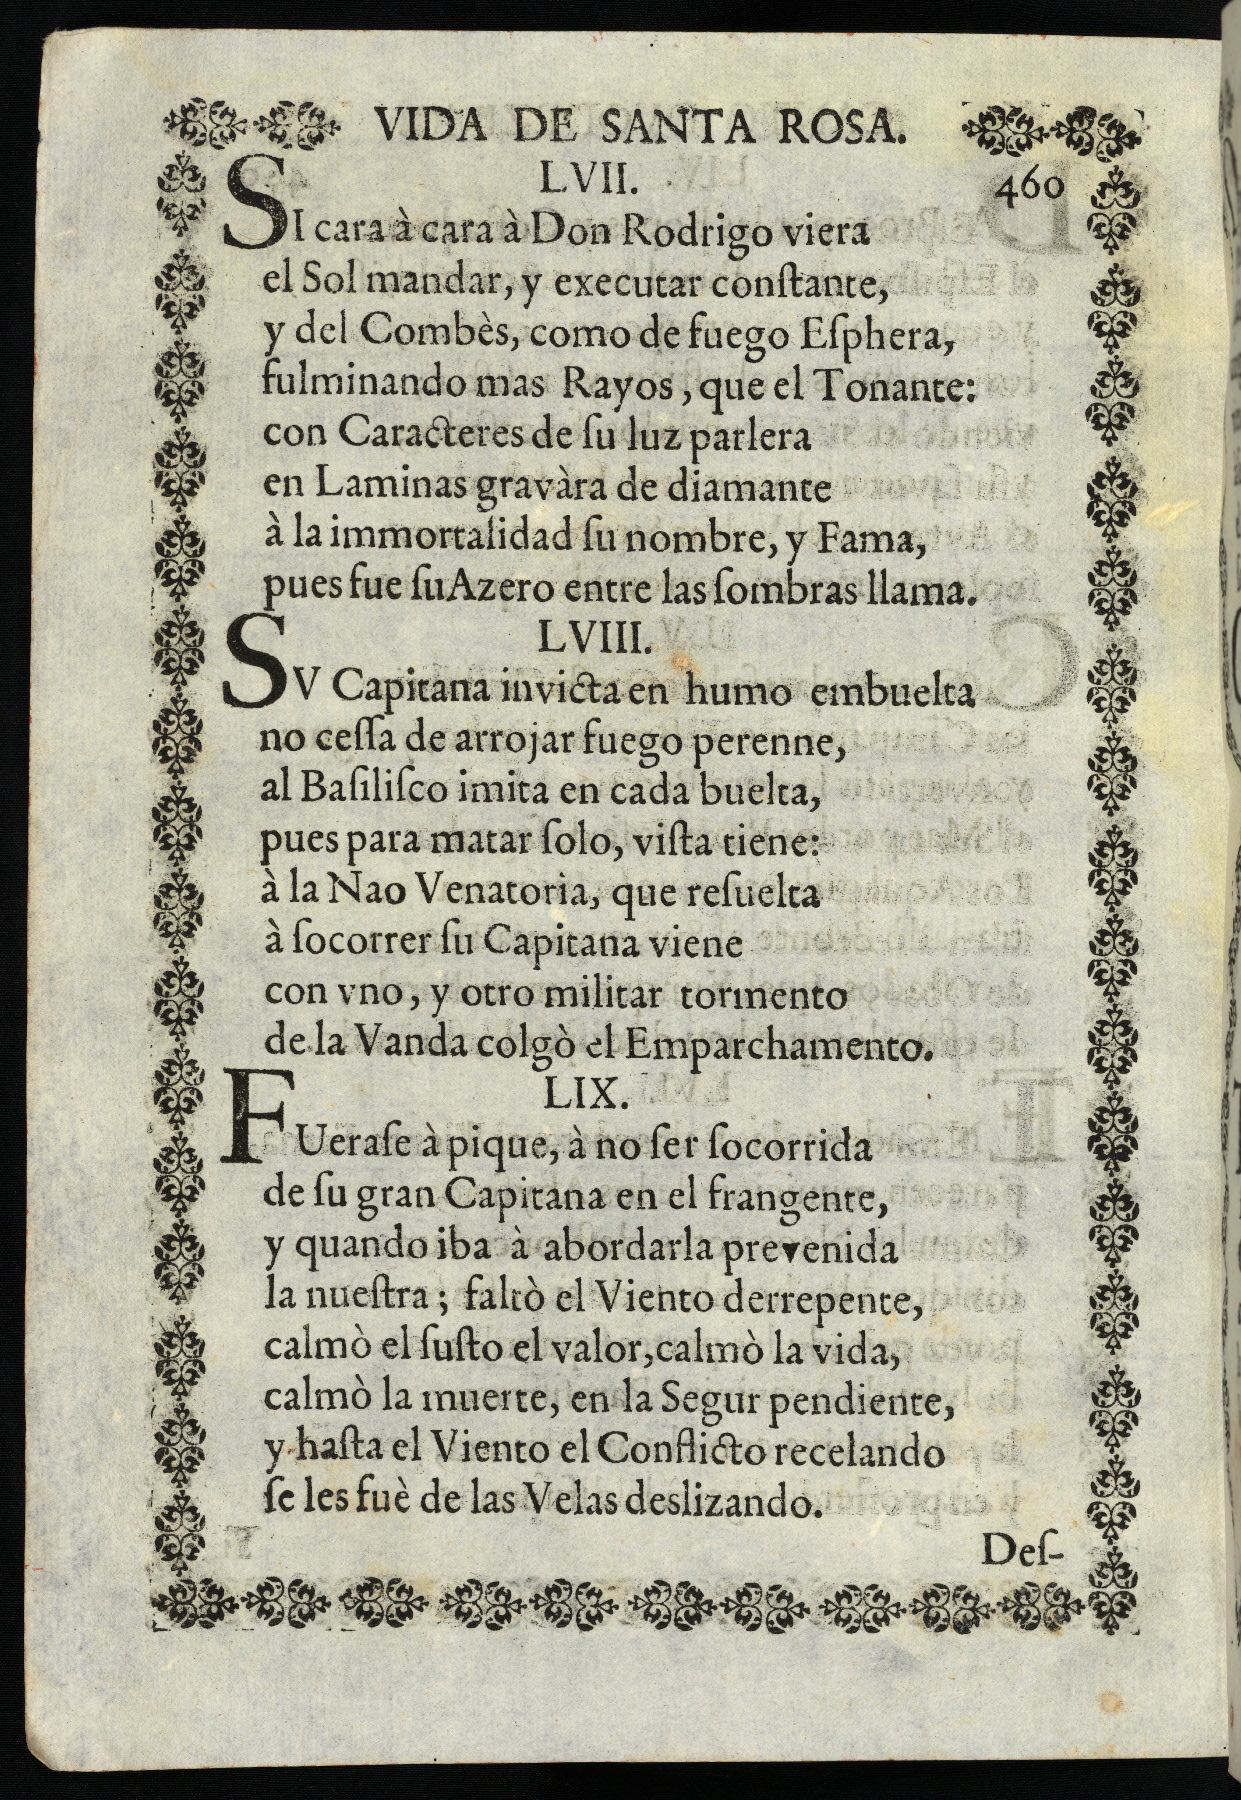 VIDA DE SANTA ROSA.
LVII. 460
SI cara à cara à Don Rodrigo viera
el Sol mandar, y executar conſtante,
y del Combès, como de fuego Eſphera,
fulminando mas Rayos, que el Tonante:
con Caracteres de ſu luz parlera
en Laminas gravàra de diamante
à la immortalidad ſu nombre, y Fama,
pues fue ſuAzero entre las ſombras llama.
LVIII.
SV Capitana invicta en humo embuelta
no ceſſa de arrojar fuego perenne,
al Baſiliſco imita en cada buelta,
pues para matar ſolo, viſta tiene:
à la Nao Venatoria, que reſuelta
à ſocorrer ſu Capitana viene
con vno, y otro militar tormento
de la Vanda colgò el Emparchamento.
LIX.
FUeraſe à pique, à no ſer ſocorrida
de ſu gran Capitana en el frangente,
y quando iba à abordarla prevenida
la nueſtra; faltò el Viento derrepente,
calmò el ſuſto el valor, calmò la vida,
calmò la muerte, en la Segur pendiente,
y haſta el Viento el Conflicto recelando
ſe les fuè de las Velas deslizando.
Deſ-